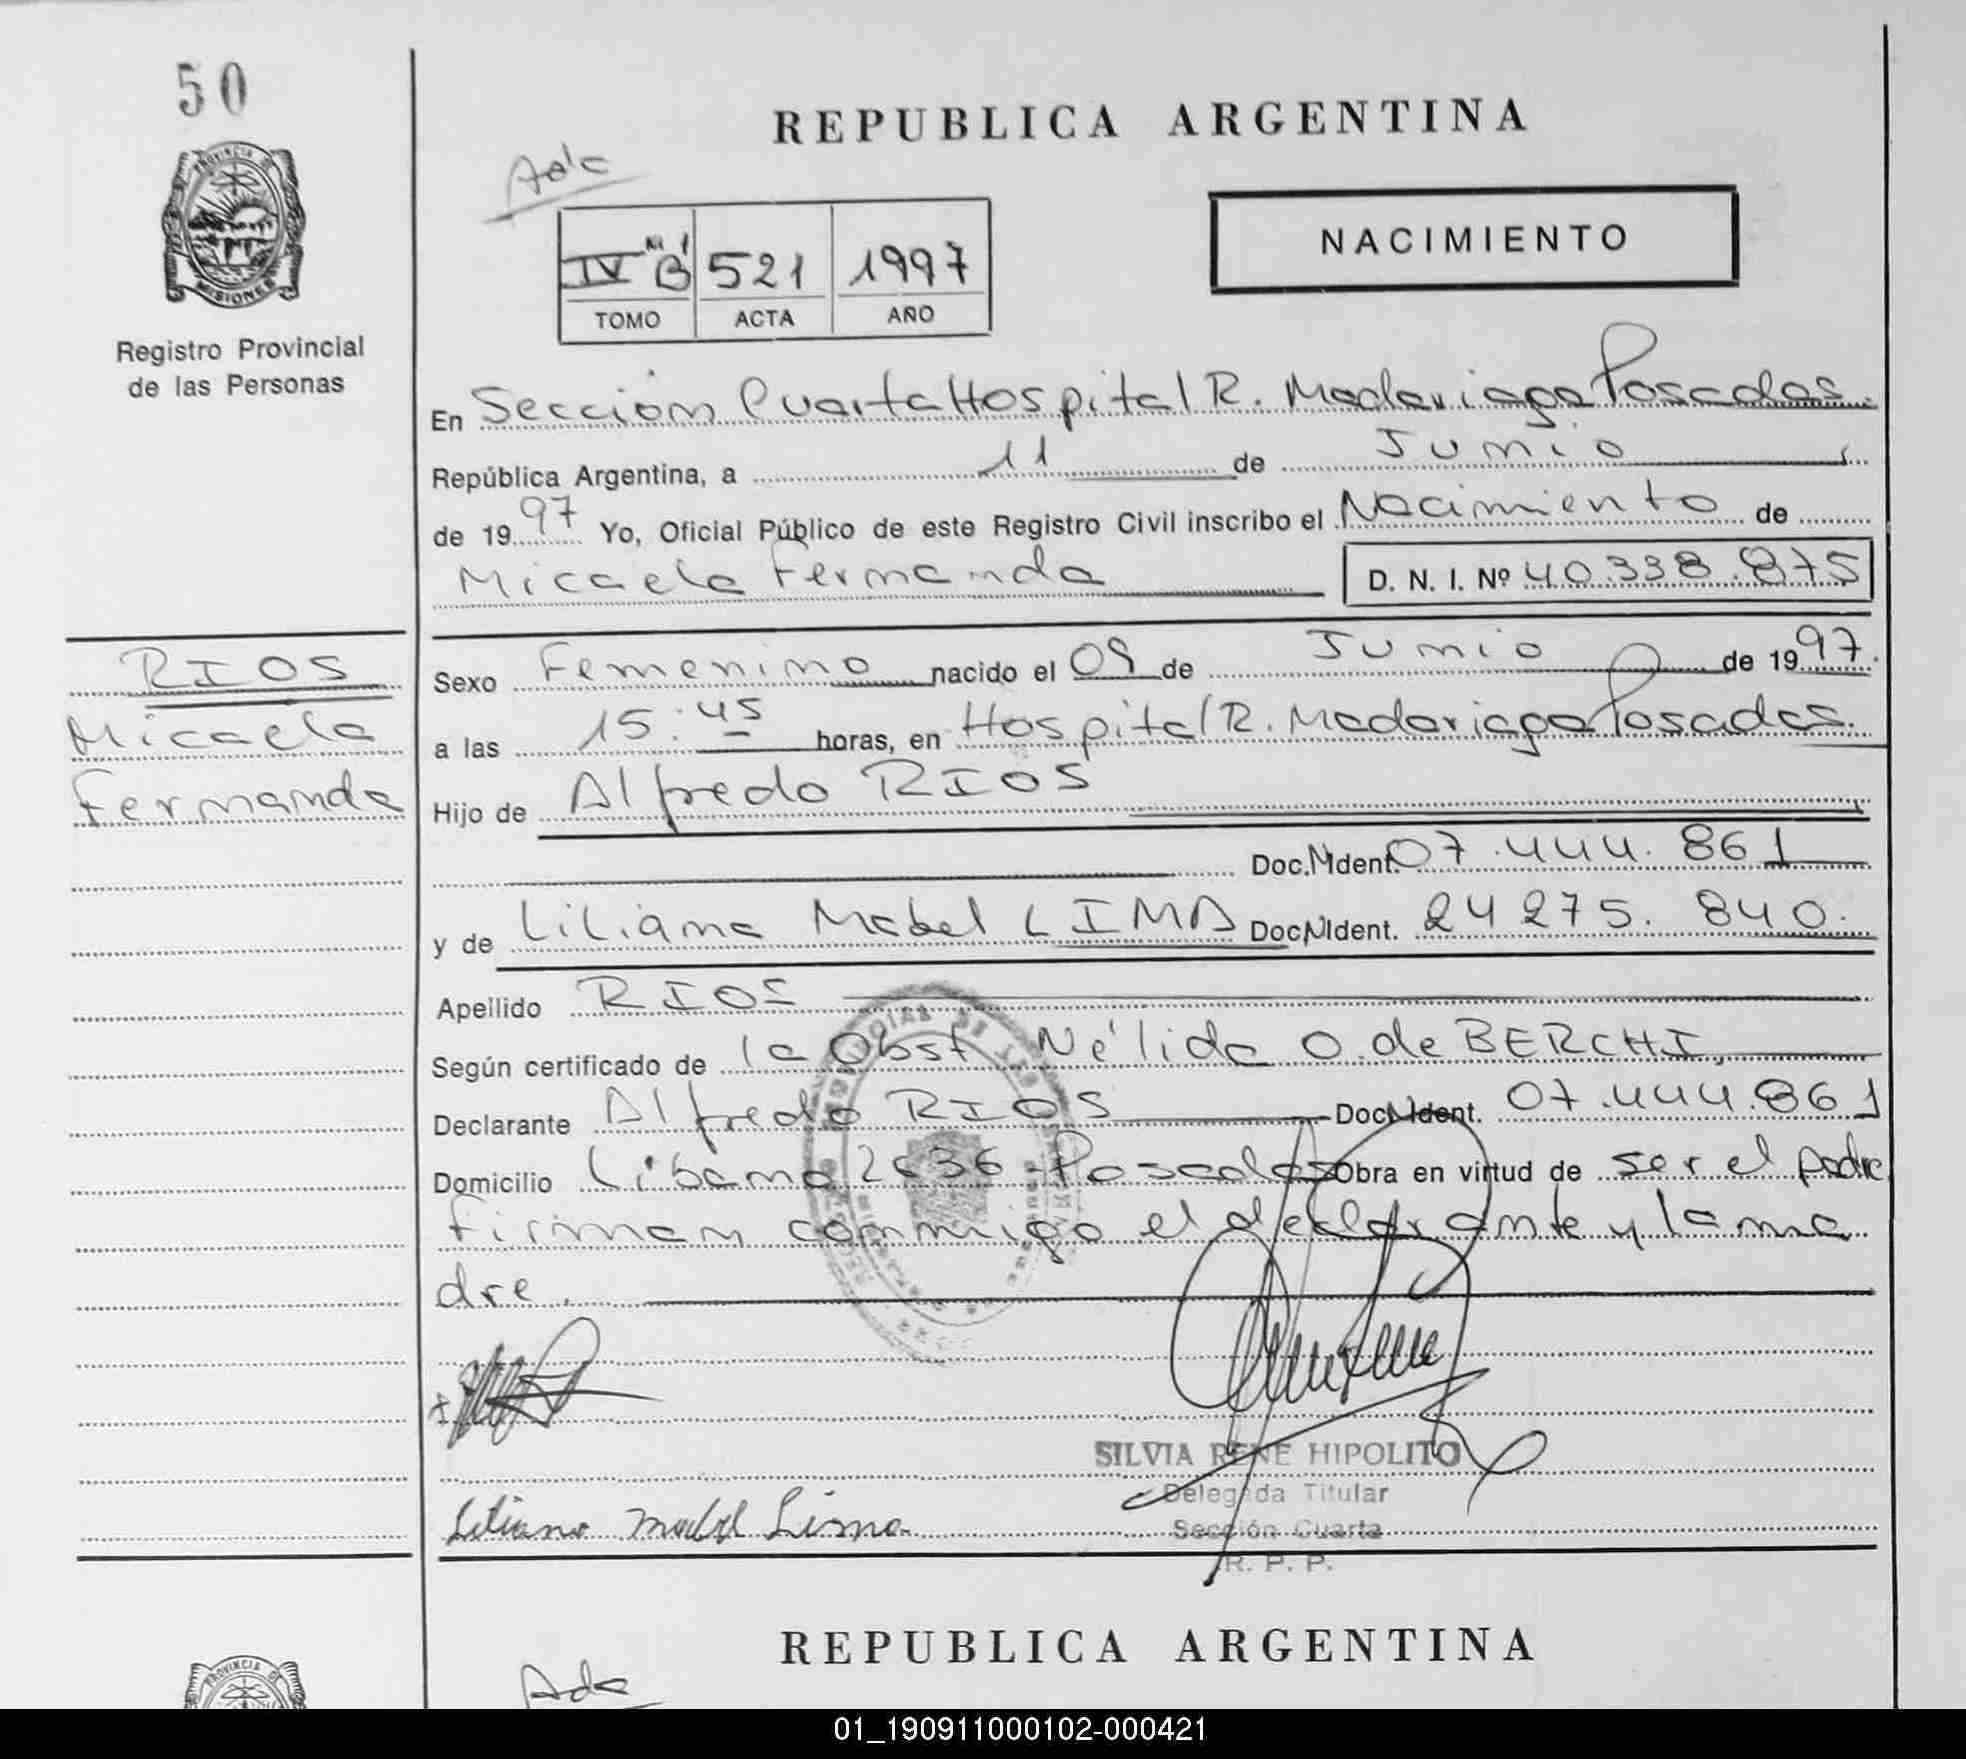 50
REPUBLICA ARGENTINA
PROVINCIA DE
MISIONES
Registro Provincial
de las Personas
IV Nº 1 B 521 1997
TOMO ACTA AÑO
NACIMIENTO
En Sección Cuarta Hospital R. Madariaga Posadas.
República Argentina, a 11 de Junio
de 1997 Yo, Oficial Público de este Registro Civil inscribo el Nacimiento de
Micaela Fernanda D. N. I. Nº 40.338.875
RIOS
Micaela
Fernanda
Sexo Femenino nacido el 09 de Junio de 1997.
a las 15:45 horas, en Hospital R. Madariaga Posadas.
Hijo de Alfredo RIOS
Doc. N Ident. 07.444.861
y de Liliana Mabel LIMA Doc. N Ident. 24 275. 840.
Apellido RIOS
Según certificado de la Obst Nélida O. de BERCHI,
Declarante Alfredo RIOS Doc. N Ident. 07.444.861
Domicilio Libano 2636 - Posadas Obra en virtud de ser el padre
firman conmigo el declarante y la ma
dre.
SILVIA RENE HIPOLITO
Delegada Titular
Sección Cuarta
R. P. P.
Liliana Mabel Lima
REPUBLICA ARGENTINA
PROVINCIA DE
01_190911000102-000421